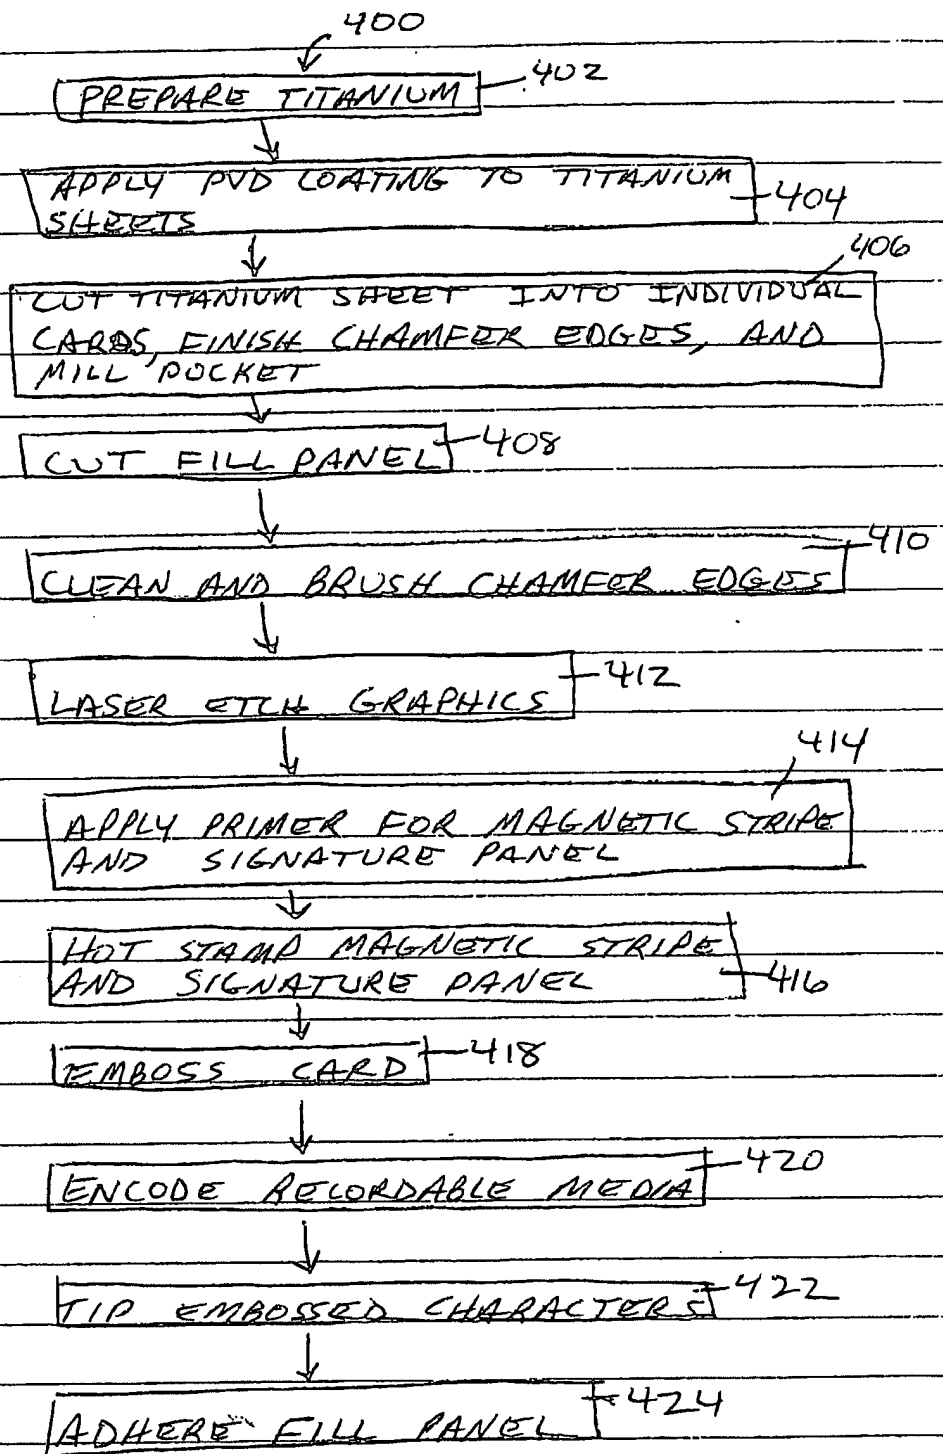 400
PREPARE TITANIUM
402
APPLY PVD COATING TO TITANIUM
SHEETS
404
406
CUT TITANIUM SHEET INTO INDIVIDUAL
CARDS, FINISH CHAMFER EDGES, AND
MILL POCKET
CUT FILL PANEL
408
410
CLEAN AND BRUSH CHAMFER EDGES
LASER ETCH GRAPHICS
412
414
APPLY PRIMER FOR MAGNETIC STRIPE
AND SIGNATURE PANEL
HOT STAMP MAGNETIC STRIPE
AND SIGNATURE PANEL
416
EMBOSS CARD
418
ENCODE RECORDABLE MEDIA
420
TIP EMBOSSED CHARACTERS
422
ADHERE FILL PANEL
424